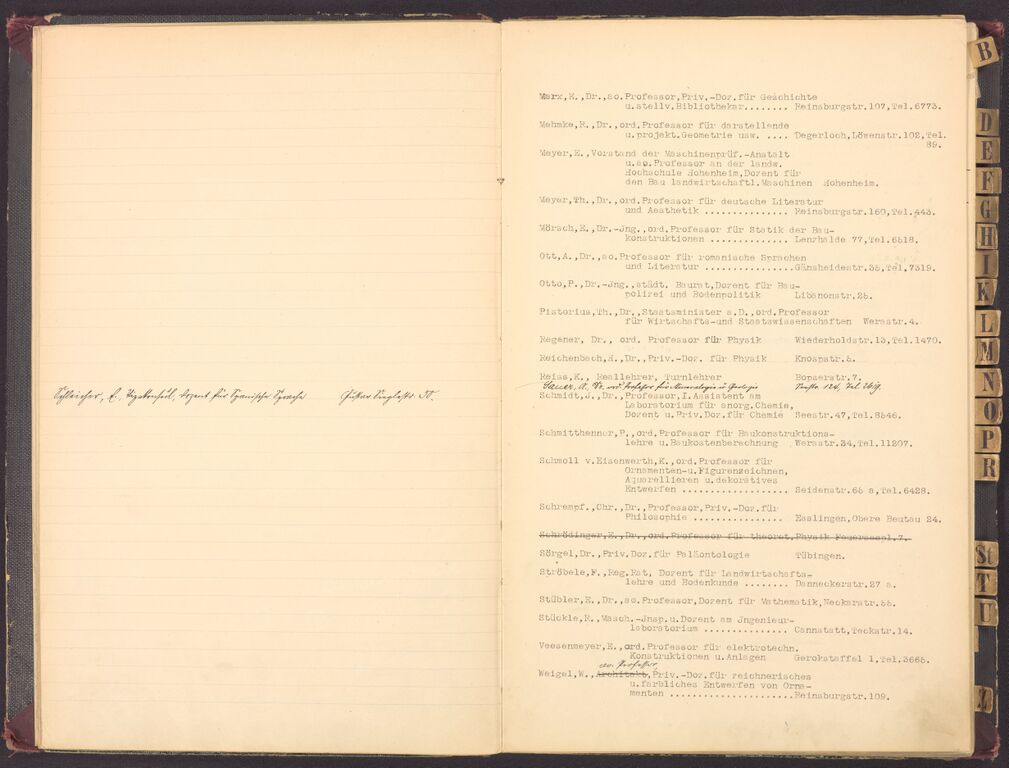 Schleicher, E. Dozent für Spanische Sprache Gustav Sieglestr. 50.
Marx,E.,Dr.,ao.Professor,Priv.-Doz.für Geschichte
u.stellv.Bibliothekar........ Reinsburgstr.107,Tel.6773.
Mehmke,R.,Dr.,ord.Professor für darstellende
u.projekt.Geometrie usw. .... Degerloch,Löwenstr.102,Tel.
89.
Meyer,E.,Vorstand der Maschinenprüf.-Anstalt
u.ao.Professor an der landw.
Hochschule Hohenheim,Dozent für
den Bau landwirtschaftl.Maschinen Hohenheim.
Meyer,Th.,Dr.,ord.Professor für deutsche Literatur
und Aesthetik ............... Reinsburgstr.160,Tel.443.
Mörsch,E.,Dr.-Jng.,ord.Professor für Statik der Bau-
konstruktionen .............. Lenzhalde 77,Tel.6518.
Ott,A.,Dr.,ao.Professor für romanische Sprachen
und Literatur ................Gänsheidestr.35,Tel.7319.
Otto,P.,Dr.-Jng.,städt. Baurat,Dozent für Bau-
polizei und Bodenpolitik Libanonstr.25.
Pistorius,Th.,Dr.,Staatsminister a.D.,ord.Professor
für Wirtschafts-und Staatswissenschaften Werastr.4.
Regener, Dr., ord. Professor für Physik Wiederholdstr.13,Tel.1470.
Reichenbach,H.,Dr.,Priv.-Doz. für Physik Knospstr.5.
Reiss,K., Reallehrer, Turnlehrer Bopserstr.7.
Sauer, A. Dr. ord. Professor für Mineralogie u. Geologie Seestr. 124. Tel. 2619.
Schmidt,J.,Dr.,Professor,I.Assistent am
Laboratorium für anorg.Chemie,
Dozent u.Priv.Doz.für Chemie Seestr.47,Tel.8546.
Schmitthenner,P.,ord.Professor für Baukonstruktions-
lehre u.Baukostenberechnung Werastr.34,Tel.11207.
Schmoll v.Eisenwerth,K.,ord.Professor für
Ornamenten-u.Figurenzeichnen,
Aquarellieren u.dekoratives
Entwerfen ................... Seidenstr.65 a,Tel.6428.
Schrempf,Chr.,Dr.,Professor,Priv.-Doz.für
Philosophie ................ Esslingen,Obere Beutau 24.
Schrödinger,E.,Dr.,ord.Professor für theoret.Physik Feuerseepl.7.
Sörgel,Dr.,Priv.Doz.für Paläontologie Tübingen.
Ströbele,F.,Reg.Rat, Dozent für Landwirtschafts-
lehre und Bodenkunde ........ Danneckerstr.27 a.
Stübler,E.,Dr.,ao.Professor,Dozent für Mathematik,Neckarstr.55.
Stückle,R.,Masch.-Jnsp.u.Dozent am Jngenieur-
laboratorium ............... Cannstatt,Teckstr.14.
Veesenmeyer,E.,ord.Professor für elektrotechn.
Konstruktionen u.Anlagen Gerokstaffel 1,Tel.3665.
ao. Professor,
Weigel,W.,Architekt,Priv.-Doz.für zeichnerisches
u.farbliches Entwerfen von Orna-
menten ......................Reinsburgstr.109.
B
D
E
F
G
H
I
K
L
M
N
O
P
R
St
T
U
Z